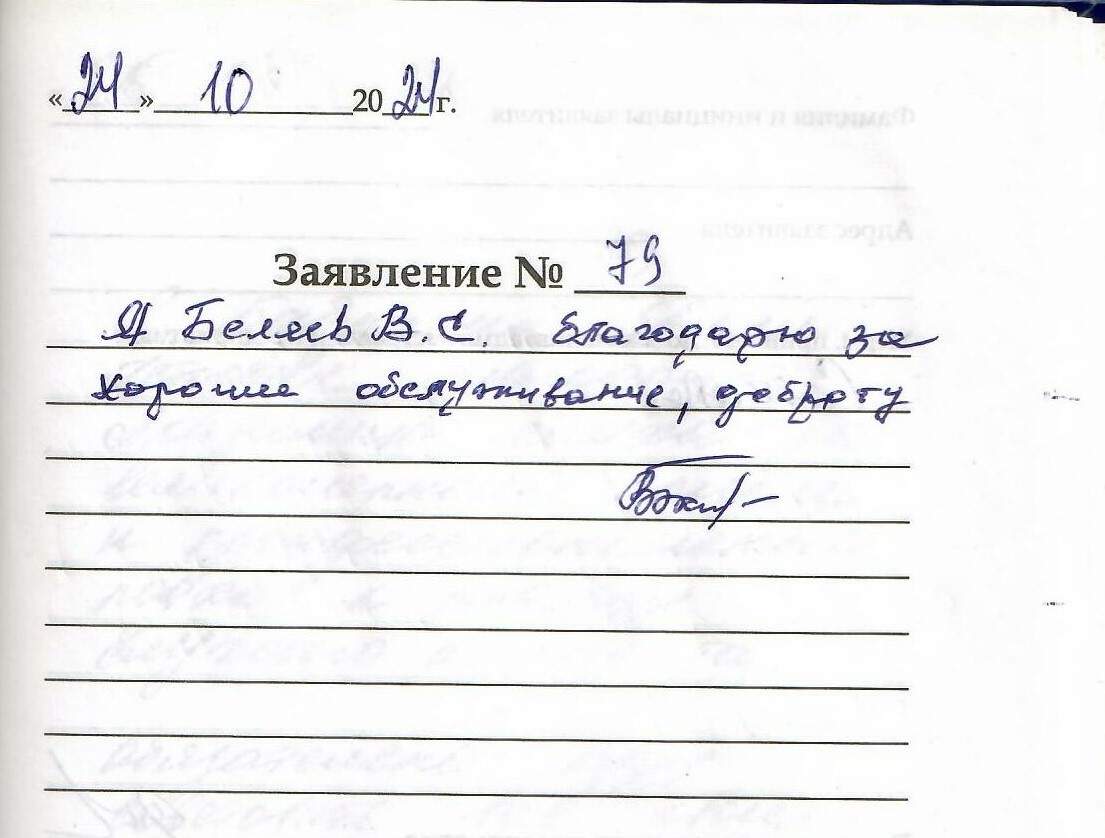 «24» 10 2024 г.
Заявление № 79
Я Беляев В.С. благодарю за
хорошие обслуживание, доброту